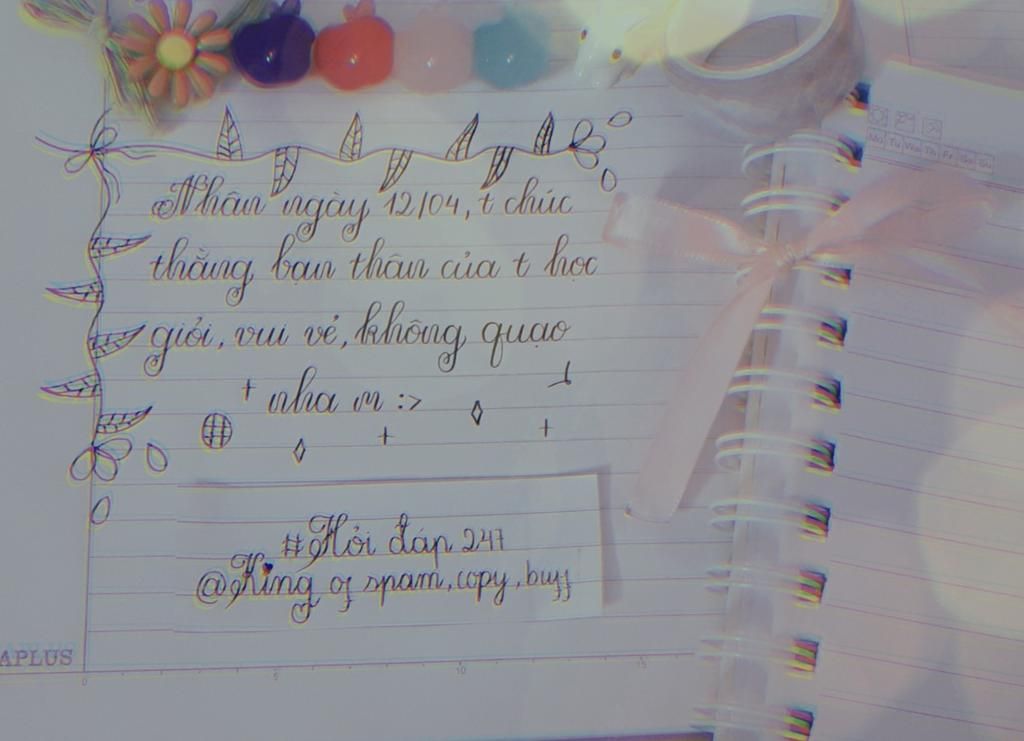 Nhân ngày 12/04, t chúc
thằng bạn thân của t học
giỏi, vui vẻ, không quạo
nha m :>
#Hỏi đáp 247
@King of spam, copy, buff
APLUS
0 5 10 15
Mo Tu We Th Fr Sa Su